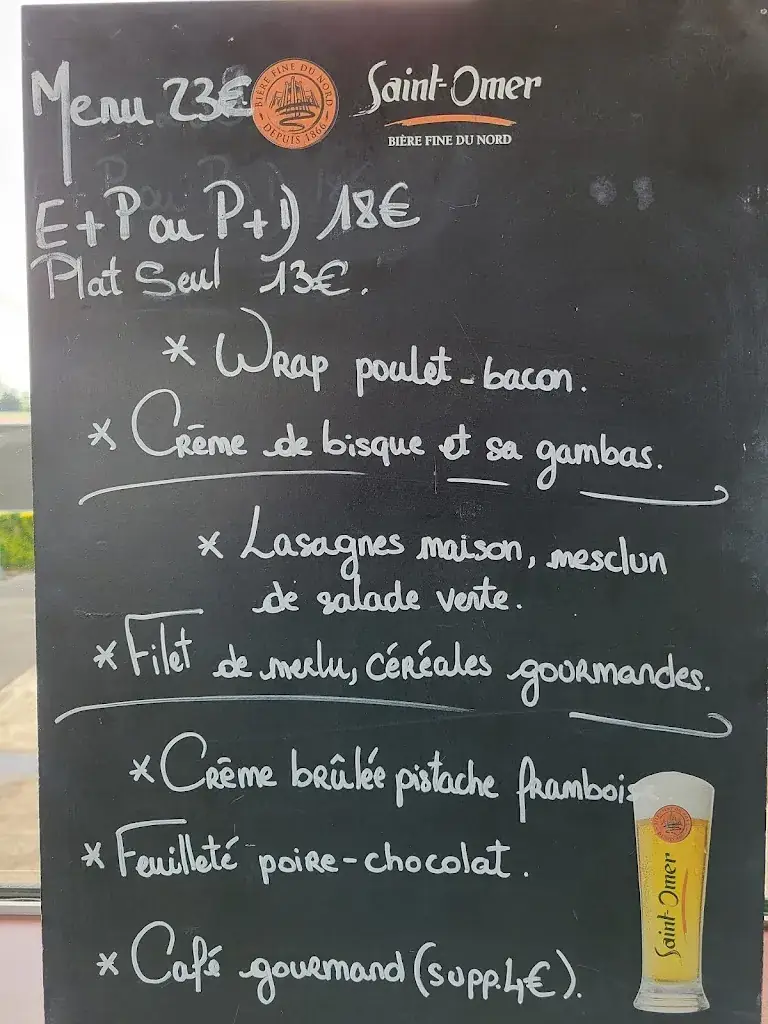 Menu 23€
BIÈRE FINE DU NORD
DEPUIS 1866
Saint-Omer
BIÈRE FINE DU NORD
E+P ou P+D 18€
Plat Seul 13€.
* Wrap poulet-bacon.
* Crème de bisque et sa gambas.
* Lasagnes maison, mesclun
de salade verte.
* Filet de merlu, céréales gourmandes.
* Crème brûlée pistache frambois
* Feuilleté poire-chocolat.
Saint-Omer
* Café gourmand (supp.4€).